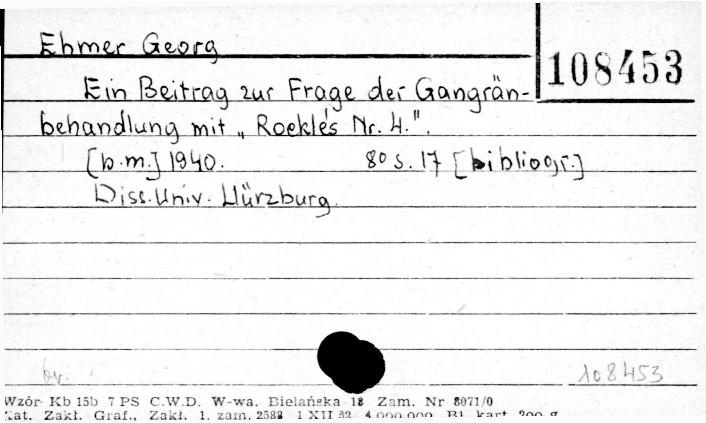 Ehmer Georg
108453
Ein Beitrag zur Frage der Gangrän-
behandlung mit „Roeklés Nr. 4.".
[b.m.] 1940. 8° s. 17 [bibliogr.]
Diss. Univ. Würzburg.
br. 108453
Wzór Kb 15b 7 PS C.W.D. W-wa, Bielańska 18 Zam. Nr 8071/0
Zakł. Graf., Zakł. 1, zam. 2588 1 XII 52 4.000.000 Bł. kart. 200 g